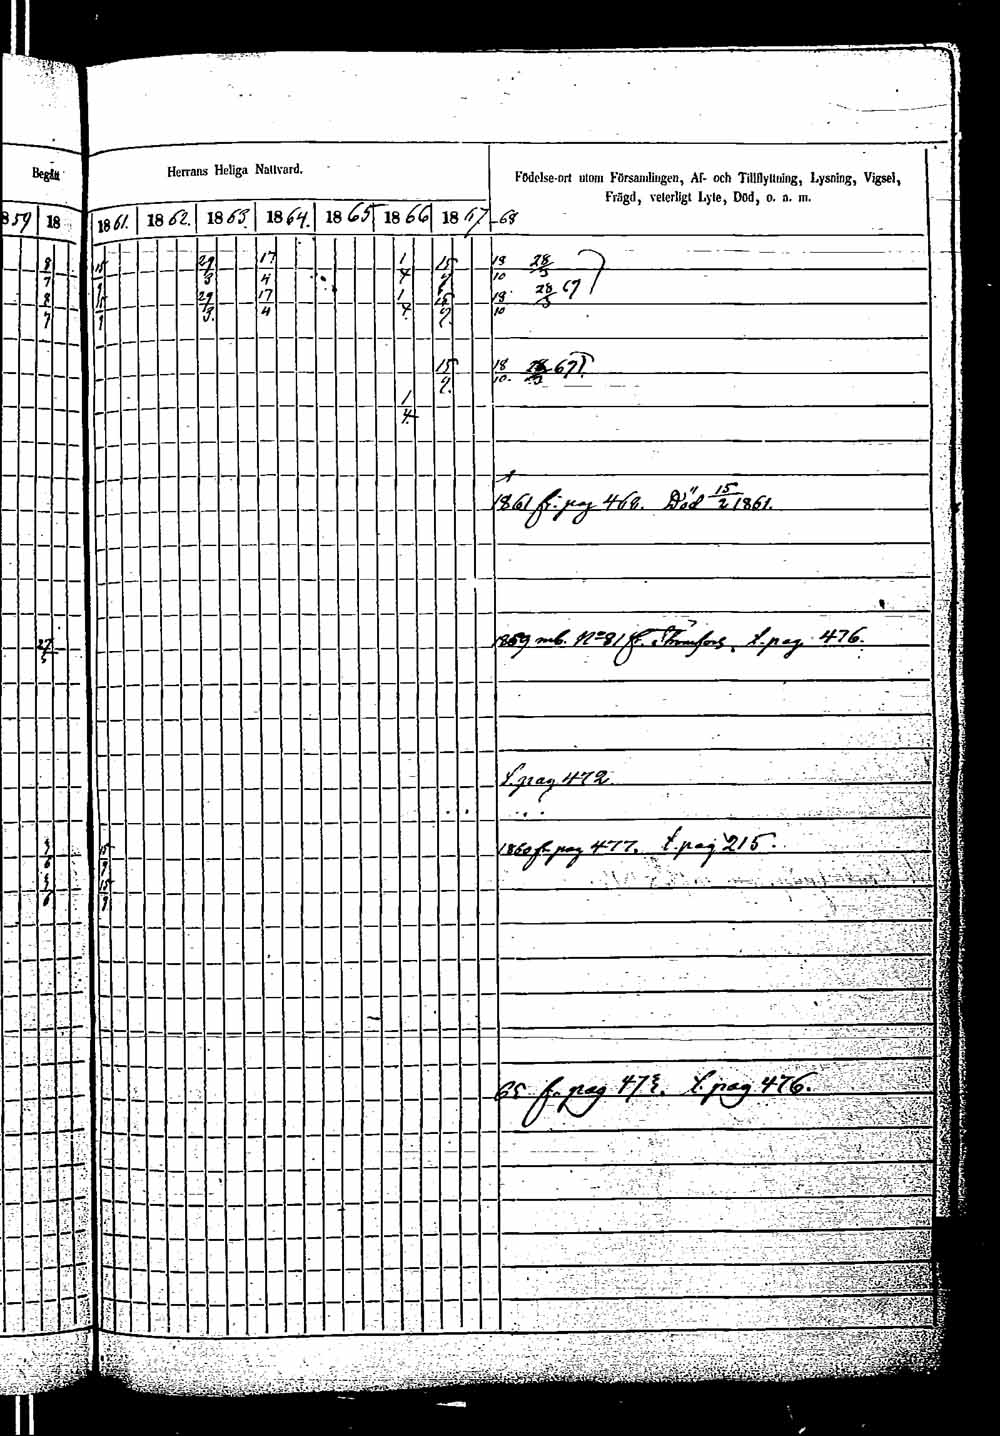 Begått
Herrans Heliga Nattvard.
Födelse-ort utom Församlingen, Af- och Tillflyttning, Lysning, Vigsel,
Frägd, veterligt Lyte, Död, o. s. m.
1859 18 1861. 1862. 1863. 1864. 1865 1866 1867 -68
8/7 15/9 29/3 17/4 1/4 15/9 18/10 28/3
8/7 15/9 29/3 17/4 1/4 15/9 18/10 28/3 67
15/9. 18/10. 28/3 67
1/4.
1861 fr. pag 468. Död 15/2 1861.
27/5 1859 mb. No 81 fr. Strömfors. t. pag. 476.
t. pag 472.
15/9 1860 fr. pag 477. t. pag 215.
15/9
65 fr. pag t. pag 476.